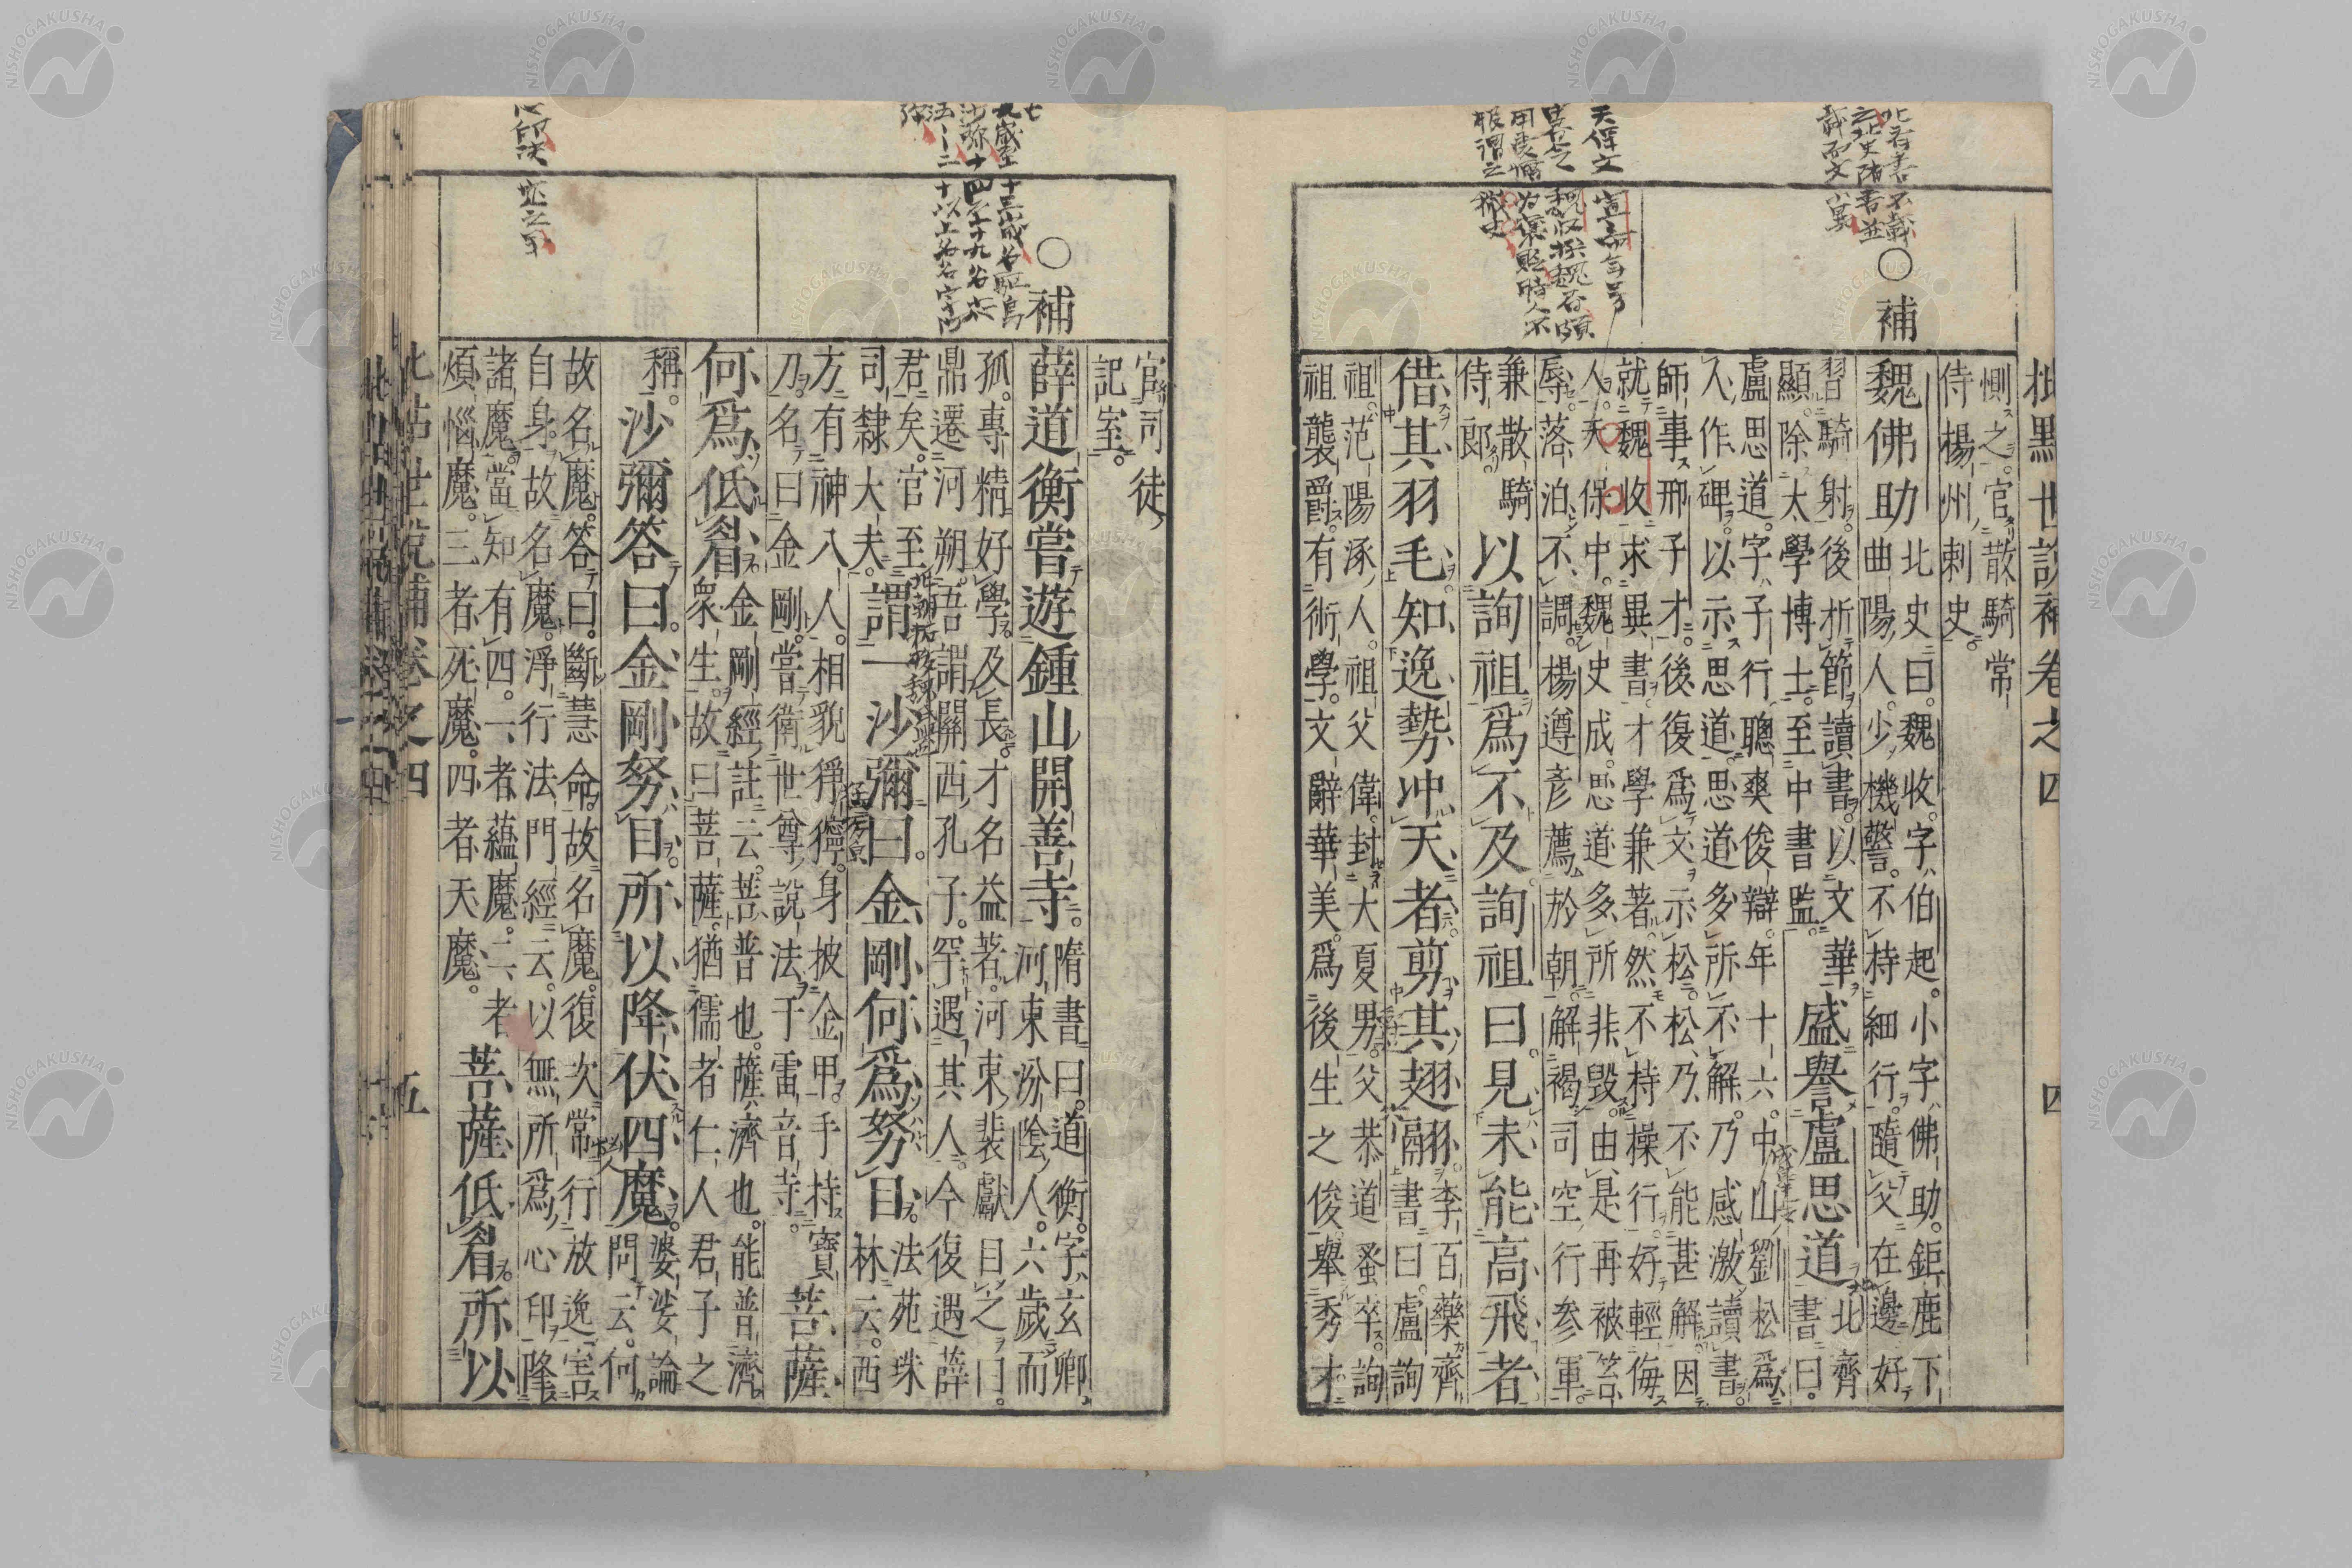 批點世説補卷之四 四
北齊書不載
之北史隋書並
載而文小異
天保文宣帝年号
○補
惻之。官散騎常
侍楊州刺史。
魏佛助
北史曰。魏收。字伯起。小字佛助。鉅鹿下
曲陽人。少機警。不持細行。隨父在邊好
習騎射。後折節讀書。以文華
顯。除太學博士。至中書監。
盛譽盧思道
北齊
書曰。
盧思道。字子行。聰爽俊辯。年十六。中山劉松爲
人作碑。以示思道。思道多所不解。乃感激讀書。
師事邢子才。後復爲文示松。松乃不能甚解。因
就魏收求異書。才學兼著。然不持操行。好輕侮
人。天保中。魏史成。思道多所非毀。由是再被笞
辱。落泊不調。楊遵彥薦於朝。解褐司空行參軍
兼散騎
侍郎。
以詢祖爲不及詢祖曰見未能高飛者
借其羽毛。知逸勢沖天者。剪其翅翮。
李百藥齊
書曰。盧詢
祖。范陽涿人。祖父偉。封大夏男。父恭道蚤卒。詢
祖襲爵。有術學。文辭華美。爲後生之俊。舉秀才
○補
官司徒
記室。
薛道衡嘗遊鍾山開善寺。
隋書曰。道衡。字玄卿
河東汾陰人。六歲而
孤。專精好學。及長。才名益著。河東裴獻目之曰。
鼎遷河朔。吾謂關西孔子。罕遇其人。今復遇薛
君矣。官至
司隸大夫。
謂一沙彌曰。金剛何爲努目。
法苑珠
林云。西
方有神人。相貌猙獰。身披金甲。手持寶
刀。名曰金剛。嘗衛世尊說法于雷音寺。
菩薩
何爲低眉。
金剛經註云。菩普也。薩濟也。能普濟
衆生。故曰菩薩。猶儒者仁人君子之
稱。
沙彌答曰。金剛努目。所以降伏四魔。
婆娑論
問云。何
故名魔。答曰。斷慧命。故名魔。復次常行放逸害
自身。故名魔。淨行法門經云。以無所爲心印降
諸魔。當知有四。一者蘊魔。二者
煩惱魔。三者死魔。四者天魔。
菩薩低眉。所以
批點世説補卷之四 五
NISHOGAKUSHA